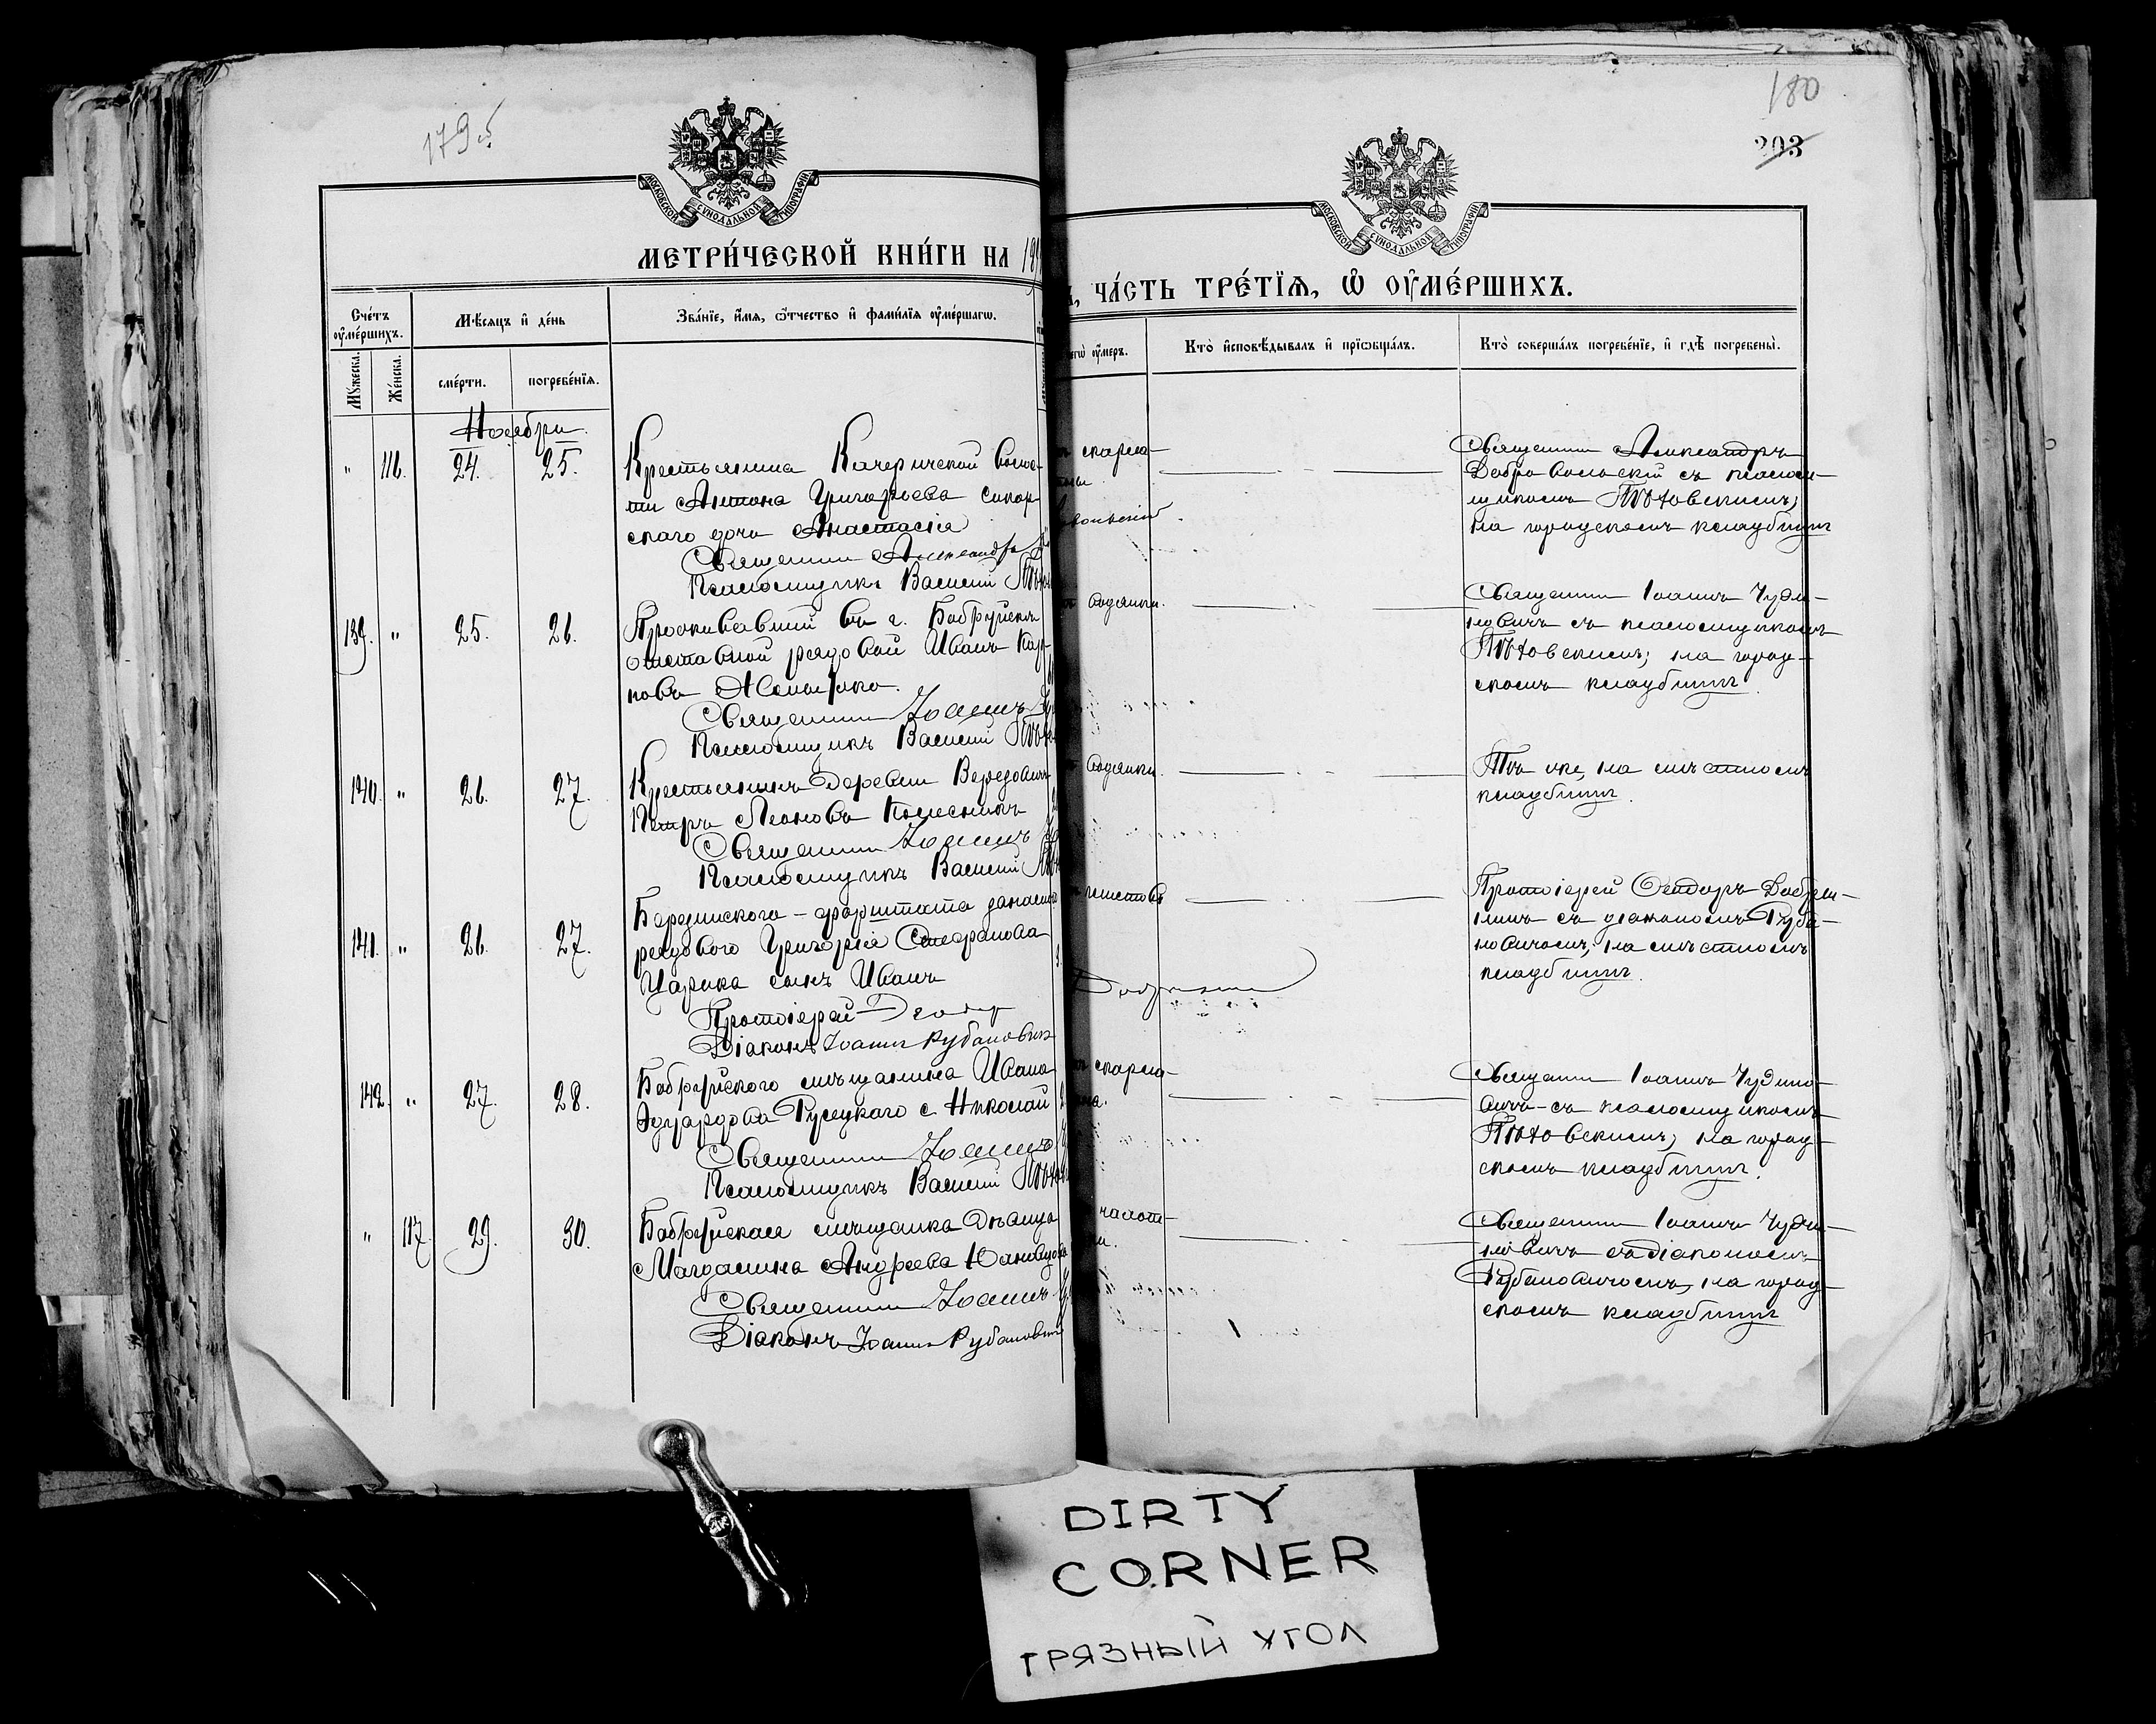 179 об
180
203
МОСКОВСКОЙ СѴНОДАЛЬНОЙ ТИПОГРАФІИ
МОСКОВСКОЙ СѴНОДАЛЬНОЙ ТИПОГРАФІИ
МЕТРИ́ЧЕСКОЙ КНИ́ГИ НА 189
ЧА́СТЬ ТРЕ́ТІѦ, Ѡ҆ ОУ҆МЕ́РШИХЪ.
Сче́тъ оу҆ме́ршихъ.
Мѣ́сяцъ и҆ де́нь
Зва́нїе, и҆́мя, ѻ҆́тчество и҆ фами́лїя оу҆ме́ршагѡ.
Мꙋ́жеска.
Же́нска.
сме́рти.
погребе́нїя.
чегѡ̀ оу҆́меръ.
Кто̀ и҆сповѣ́дывалъ и҆ прїѡбща́лъ.
Кто̀ соверша́лъ погребе́нїе, и҆ гдѣ̀ погребены̀.
Ноября
" 116. 24. 25.
Крестьянина Качеричской волос-
ти Антона Григорьева Сикор-
скаго дочь Анастасія
Священникъ Александръ
Псаломщикъ Василій
скарла-
Священникъ Александръ
Добровольскій съ псалом-
щикомъ Тѣховскимъ;
на городскомъ кладбищѣ
139. " 25. 26.
Проживавшій въ г. Бобруйскѣ
отставной рядовой Иванъ Кар-
повъ
Священникъ Іоаннъ
Псаломщикъ Василій
водянки.
Священникъ Іоаннъ Чуди-
новичъ съ псаломщикомъ
Тѣховскимъ; на город-
скомъ кладбищѣ.
140. " 26. 27.
Крестьянинъ деревни
Петръ Леоновъ Колесникъ
Священникъ Іоаннъ
Псаломщикъ Василій
водянки.
Тѣ же, на мѣстномъ
кладбищѣ.
141. " 26. 27.
Березинскаго-форштата запасного
рядового Григорія Стефанова
Царика сынъ Иванъ
Протоіерей
Діаконъ Іоаннъ Рубановичъ
Протоіерей Ѳеодоръ
съ діакономъ Руба-
новичемъ; на мѣстномъ
кладбищѣ.
142. " 27. 28.
Бобруйскаго мѣщанина Ивана
Эдуардова Русецкаго с. Николай
Священникъ Іоаннъ
Псаломщикъ Василій
скарла-
Священникъ Іоаннъ Чудино-
вичъ съ псаломщикомъ
Тѣховскимъ, на город-
скомъ кладбищѣ.
" 117. 29. 30.
Бобруйская мѣщанка дѣвица
Магдалина Андреева
Священникъ Іоаннъ
Діаконъ Іоаннъ Рубановичъ
чахот-
Священникъ Іоаннъ Чуди-
новичъ съ діакономъ
Рубановичемъ, на город-
скомъ кладбищѣ
DIRTY
CORNER
ГРЯЗНЫЙ УГОЛ